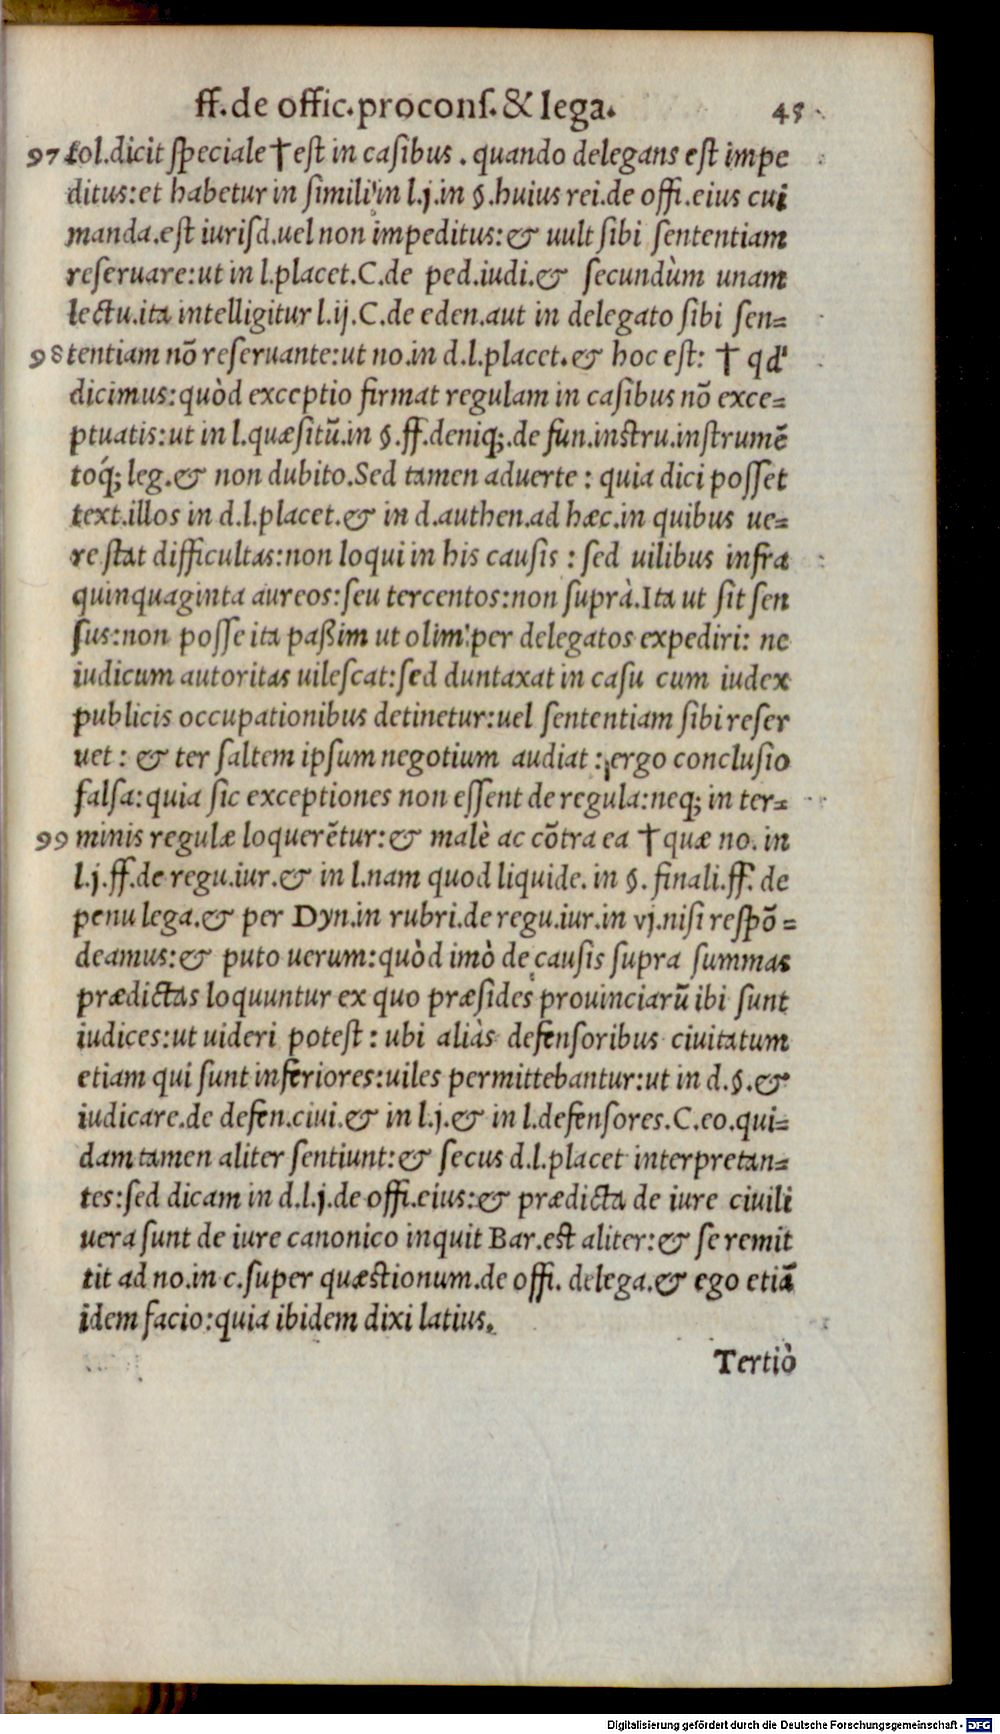 ff. de offic. procons. & lega. 45
97 sol.dicit speciale † est in casibus . quando delegans est impe
ditus: et habetur in simili in l.j.in §.huius rei.de offi.eius cui
manda.est iurisd.uel non impeditus: & uult sibi sententiam
reseruare: ut in l.placet.C.de ped.iudi.& secundùm unam
lectu.ita intelligitur l.ij.C.de eden.aut in delegato sibi sen=
98 tentiam nō reseruante: ut no.in d.l.placet.& hoc est: † qd'
dicimus: quòd exceptio firmat regulam in casibus nō exce=
ptuatis: ut in l.quæsitū.in §.ff.deniq;.de fun.instru.instrumē
toq́; leg.& non dubito.Sed tamen aduerte : quia dici posset
text.illos in d.l.placet.& in d.authen.ad hæc.in quibus ue=
re stat difficultas: non loqui in his causis : sed uilibus infra
quinquaginta aureos: seu tercentos: non suprà.Ita ut sit sen
sus: non posse ita paßim ut olim per delegatos expediri: ne
iudicum autoritas uilescat: sed duntaxat in casu cum iudex
publicis occupationibus detinetur: uel sententiam sibi reser
uet : & ter saltem ipsum negotium audiat : ergo conclusio
falsa: quia sic exceptiones non essent de regula: neq; in ter=
99 minis regulæ loquerētur: & malè ac cōtra ea † quæ no. in
l.j.ff.de regu.iur.& in l.nam quod liquide. in §. finali.ff. de
penu lega.& per Dyn.in rubri.de regu.iur.in vj.nisi respō=
deamus: & puto uerum: quòd imò de causis supra summas
prædictas loquuntur ex quo præsides prouinciarū ibi sunt
iudices: ut uideri potest : ubi aliàs defensoribus ciuitatum
etiam qui sunt inferiores: uiles permittebantur: ut in d.§.&
iudicare.de defen.ciui.& in l.j.& in l.defensores.C.eo.qui=
dam tamen aliter sentiunt: & secus d.l.placet interpretan=
tes: sed dicam in d.l.j.de offi.eius: & prædicta de iure ciuili
uera sunt de iure canonico inquit Bar.est aliter: & se remit
tit ad no.in c.super quæstionum.de offi. delega.& ego etiā
idem facio: quia ibidem dixi latius.
Tertiò
Digitalisierung gefördert durch die Deutsche Forschungsgemeinschaft - DFG